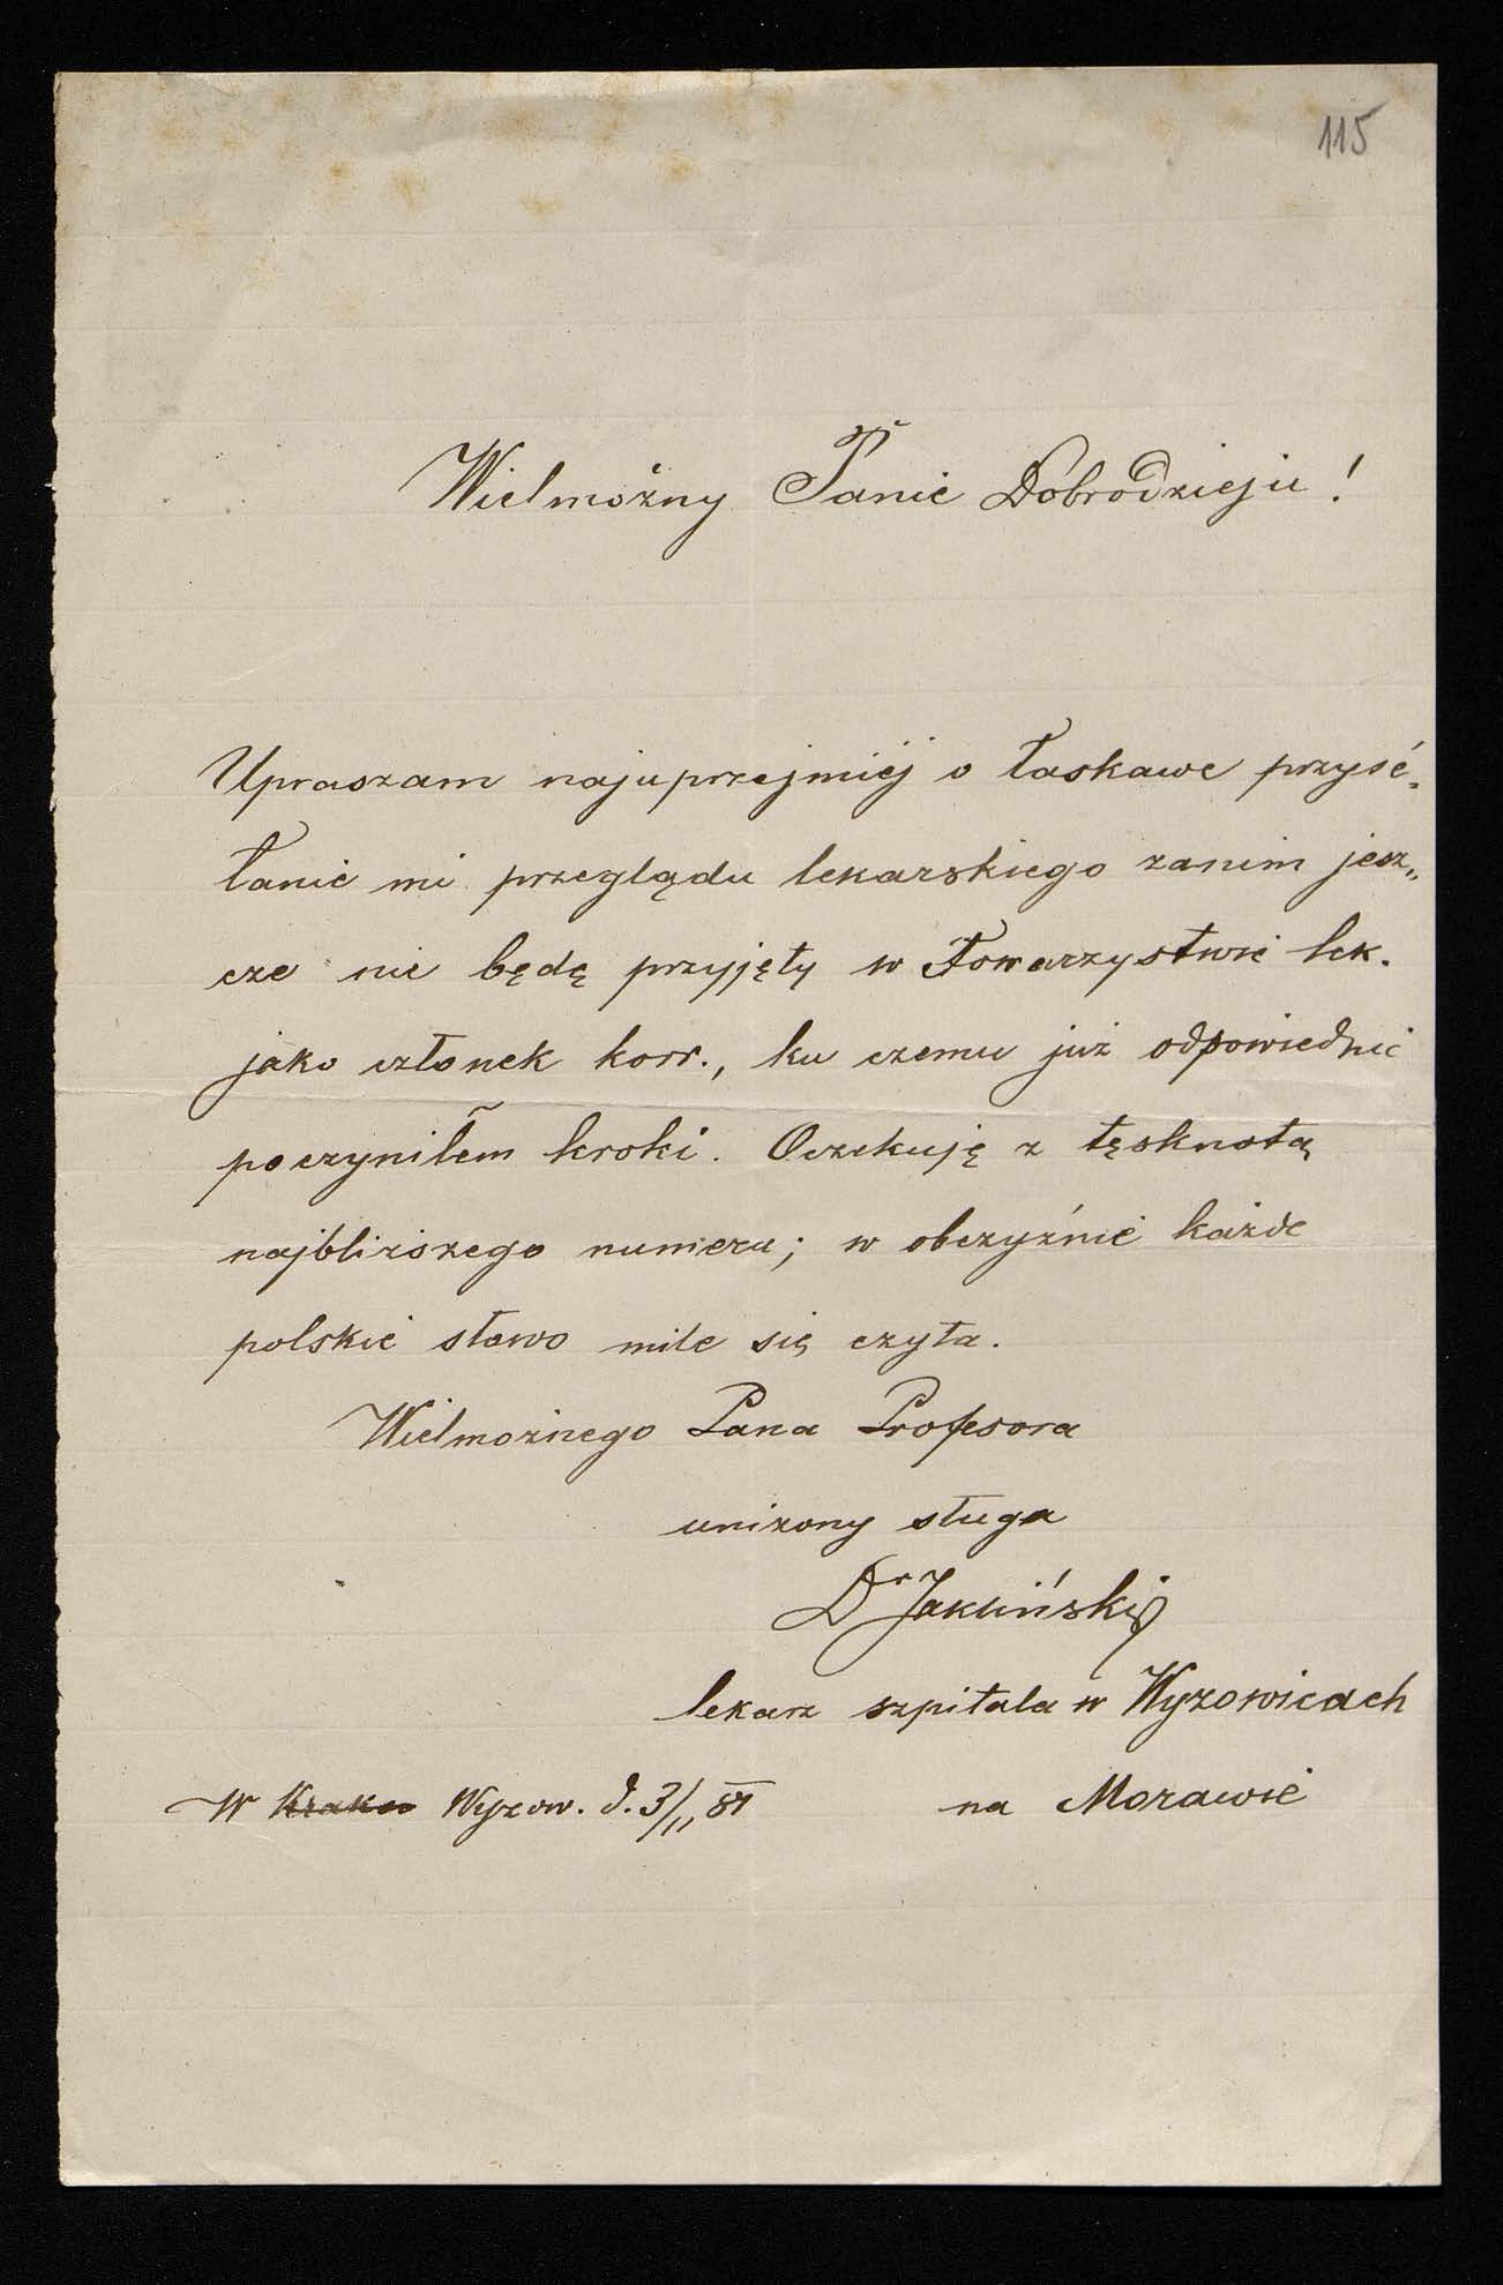 115
Wielmożny Panie Dobrodzieju!
Upraszam najuprzejmiéj o łaskawe przysé-
łanie mi przeglądu lekarskiego zanim jesz-
cze nie będę przyjęty w Towarzystwie lek.
jako członek korr., ku czemu już odpowiednie
poczyniłem kroki. Oczekuję z tęsknotą
najbliższego numeru; w obczyźnie każde
polskie słowo mile się czyta.
Wielmożnego Pana Profesora
uniżony sługa
Dr Jakliński
lekarz szpitala w Wyzowicach
na Morawie
W Krakow Wyzow. d. 3/11 87